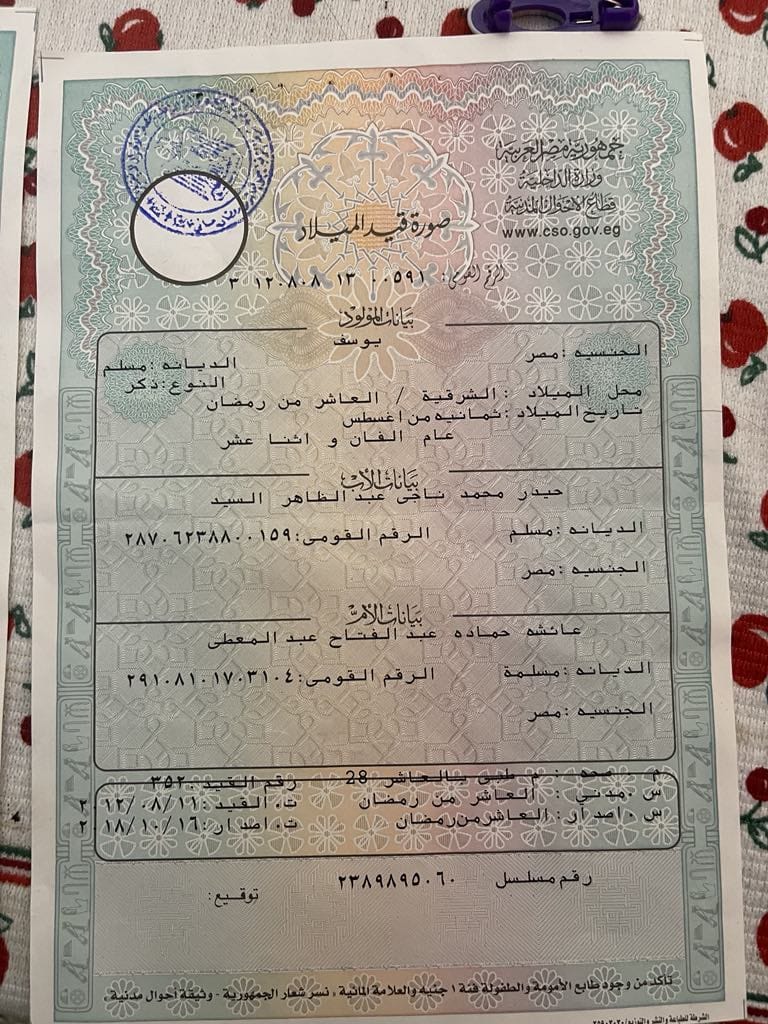 جمهورية مصر العربية
وزارة الداخلية
قطاع الأحوال المدنية
www.cso.gov.eg
صورة قيد الميلاد
الرقم القومى: ٣ ١٢٠٨٠٨ ١٣ ٠٠٥٩١
بيانات المولود
يوسف
الجنسيه :مصر
الديانه :مسلم
النوع :ذكر
محل الميلاد : الشرقية / العاشر من رمضان
تاريخ الميلاد :ثمانيه من اغسطس
عام الفان و اثنا عشر
بيانات الأب
حيدر محمد ناجى عبد الظاهر السيد
الديانه :مسلم الرقم القومى:٢٨٧٠٦٢٣٨٨٠٠١٥٩
الجنسيه :مصر
بيانات الأم
عائشه حماده عبد الفتاح عبد المعطى
الديانه :مسلمة الرقم القومى:٢٩١٠٨١٠١٧٠٣١٠٤
الجنسيه :مصر
م صحه : م طبى بالعاشر 28 رقم القيد :٣٥٢٠
س .مدني : العاشر من رمضان ت. القيد :٢٠١٢/٠٨/١١
س .اصدار: العاشر من رمضان ت. اصدار :٢٠١٨/١٠/١٦
رقم مسلسل ٢٣٨٩٨٩٥٠٦٠
توقيع:
تأكد من وجود طابع الأمومة والطفولة فئة ١ جنيه والعلامة المائية « نسر شعار الجمهورية - وثيقة أحوال مدنية »